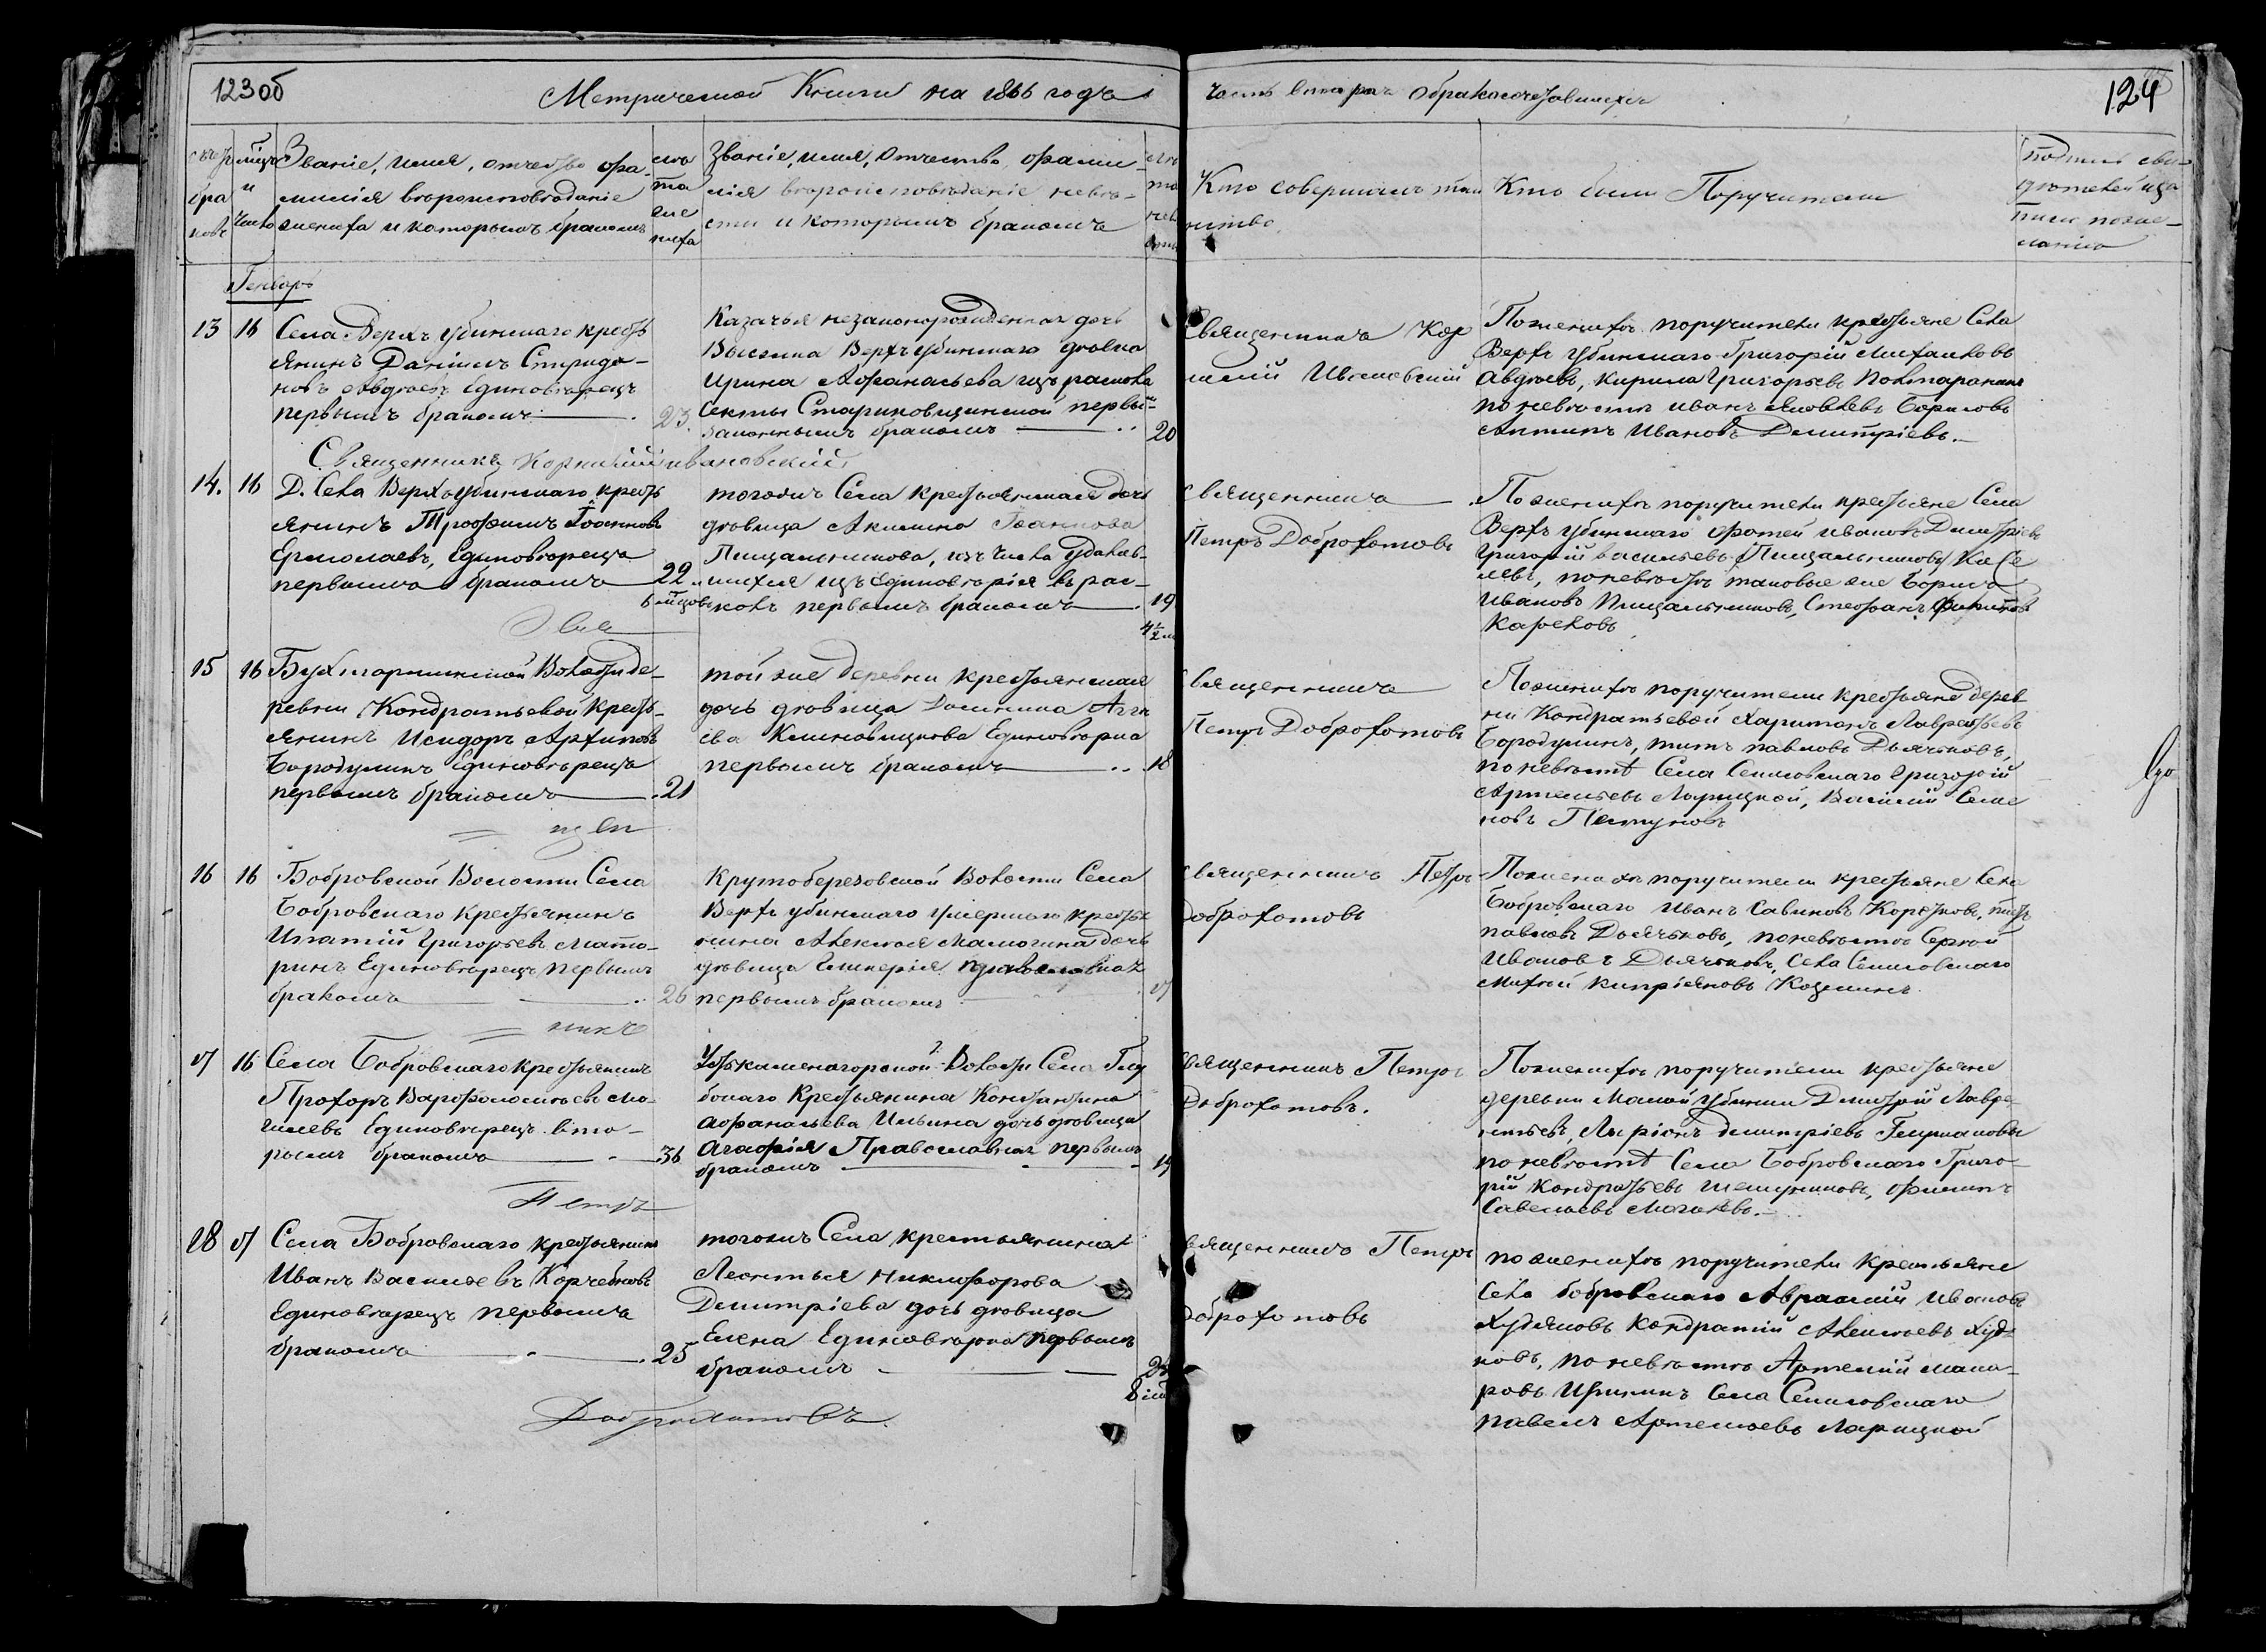 123 об
Метрической Книги на 1866 годъ
часть вторая о бракосочетавшихся
124
счетъ бра ковъ
мѣцъ и число
Званіе, имя, отчество фа-
милія вѣроисповѣданіе
жениха и которымъ бракомъ
лѣта же ниха
Званіе, имя, отчество, фами-
лія вѣроисповѣданіе невѣ-
сты и которымъ бракомъ
лѣта невѣсты
Кто совершалъ таи
нство
Кто были Поручители
подпись сви-
дѣтелей за
писи по же-
ланію
Генварь
13 16
Села Верхъ убинскаго кресть
янинъ Даніилъ Спиридо-
новъ Авдѣевъ Единовѣрецъ
первымъ бракомъ 23.
Казачья незаконорожденная дочь
Выселка Верхъ убинскаго дѣвица
Ирина Афанасьева изъ раскола
Секты Стариковщинской первы-
законнымъ бракомъ 20
Священникъ Кор
нилій Ивановскій
По женихѣ поручители крестьяне Села
Верхъ Убинскаго Григорій Михайловъ
Авдѣевъ, Кирила Григорьевъ Полтаранинъ
по невѣстѣ Иванъ Яковлевъ Борисовъ
Антипъ Ивановъ Димитріевъ.
Священникъ Корнилій Ивановскій
14. 16
Д. Села Верхъ убинскаго кресть
янинъ Трофимъ Іоанновъ
Ермолаевъ, Единовѣрецъ
первымъ бракомъ 22
6 мѣцовъ
тогожъ Села крестьянская дочь
дѣвица Акилина Іоаннова
Пищальникова, изъ числа удалив-
шихся изъ Единовѣрія въ рас-
колъ первымъ бракомъ 19
4½ м
священникъ
Петръ Доброхотовъ
По женихѣ поручители крестьяне Села
Верхъ убинскаго Фотей Ивановъ Димитріевъ
Григорій Васильевъ Пищальниковъ Кисе
левъ, по невѣстѣ таковые же Борисъ
Ивановъ Пищальниковъ, Стефанъ Филиповъ
Карековъ
15 16
Бухтарминской Волости де-
ревни Кондратьевой кресть-
янинъ Исидоръ Архиповъ
Бородулинъ Единовѣрецъ
первымъ бракомъ 21
той же деревни крестьянская
дочь дѣвица Домника Агги
ева Клиновицкова Единовѣрка
первымъ бракомъ 18
священникъ
Петръ Доброхотовъ
По женихѣ поручители крестьяне дерев
ни Кондратьевой Харитонъ Лаврентьевъ
Бородулинъ, Титъ Павловъ Дьячковъ,
по невѣстѣ Села Сенновскаго Григорій
Артемьевъ Ларицкой, Василій Семе
новъ Петуновъ
16 16
Бобровской Волости Села
Бобровскаго крестьянинъ
Игнатій Григорьевъ Мато-
ринъ Единовѣрецъ первымъ
бракомъ 26
Крутоберезовской Волости Села
Верхъ убинскаго умершаго кресть
янина Алексѣя Малыгина дочь
дѣвица Гликерія православная
первымъ бракомъ 17
священникъ Петръ
Доброхотовъ
По женихѣ поручители крестьяне Села
Бобровскаго Иванъ Савиновъ Корсуновъ, Титъ
Павловъ Дьячковъ, по невѣстѣ Сергѣй
Ивановъ Дьячковъ, Села Сенновскаго
Михей Кипріяновъ Козминъ
никъ
17 16
Села Бобровскаго крестьянинъ
Прохоръ Варфоломеевъ Мо-
гилевъ Единовѣрецъ вто-
рымъ бракомъ 36
Устькаменагорской Волости Села Глу
бокаго крестьянина Константина
Афанасьева Ильина дочь дѣвица
Агафія Православная первымъ
бракомъ 19
священникъ Петръ
Доброхотовъ.
По женихѣ поручители крестьяне
деревни Малой Убинки Димитрій Лавре-
нтьевъ, Ларіонъ Димитріевъ Гемриановы
по невѣстѣ Села Бобровскаго Григо-
рій Кондратьевъ Шелунковъ, Филипъ
Савельевъ Могилевъ.
Петръ
18 17
Села Бобровскаго крестьянинъ
Иванъ Васильевъ Корчевновъ
Единовѣрецъ первымъ
бракомъ 25
тогожъ Села крестьянина
Леонтья Никифорова
Димитріева дочь дѣвица
Елена Единовѣрка первымъ
бракомъ
священникъ Петръ
Доброхотовъ
по женихѣ поручители крестьяне
Села Бобровскаго Аврамій Ивановъ
Худяковъ Кондратій Алексѣевъ Худя
ковъ, по невѣстѣ Артемій Мака-
ровъ Села Сенновскаго
Павелъ Артемьевъ Ларицкой
Доброхотовъ